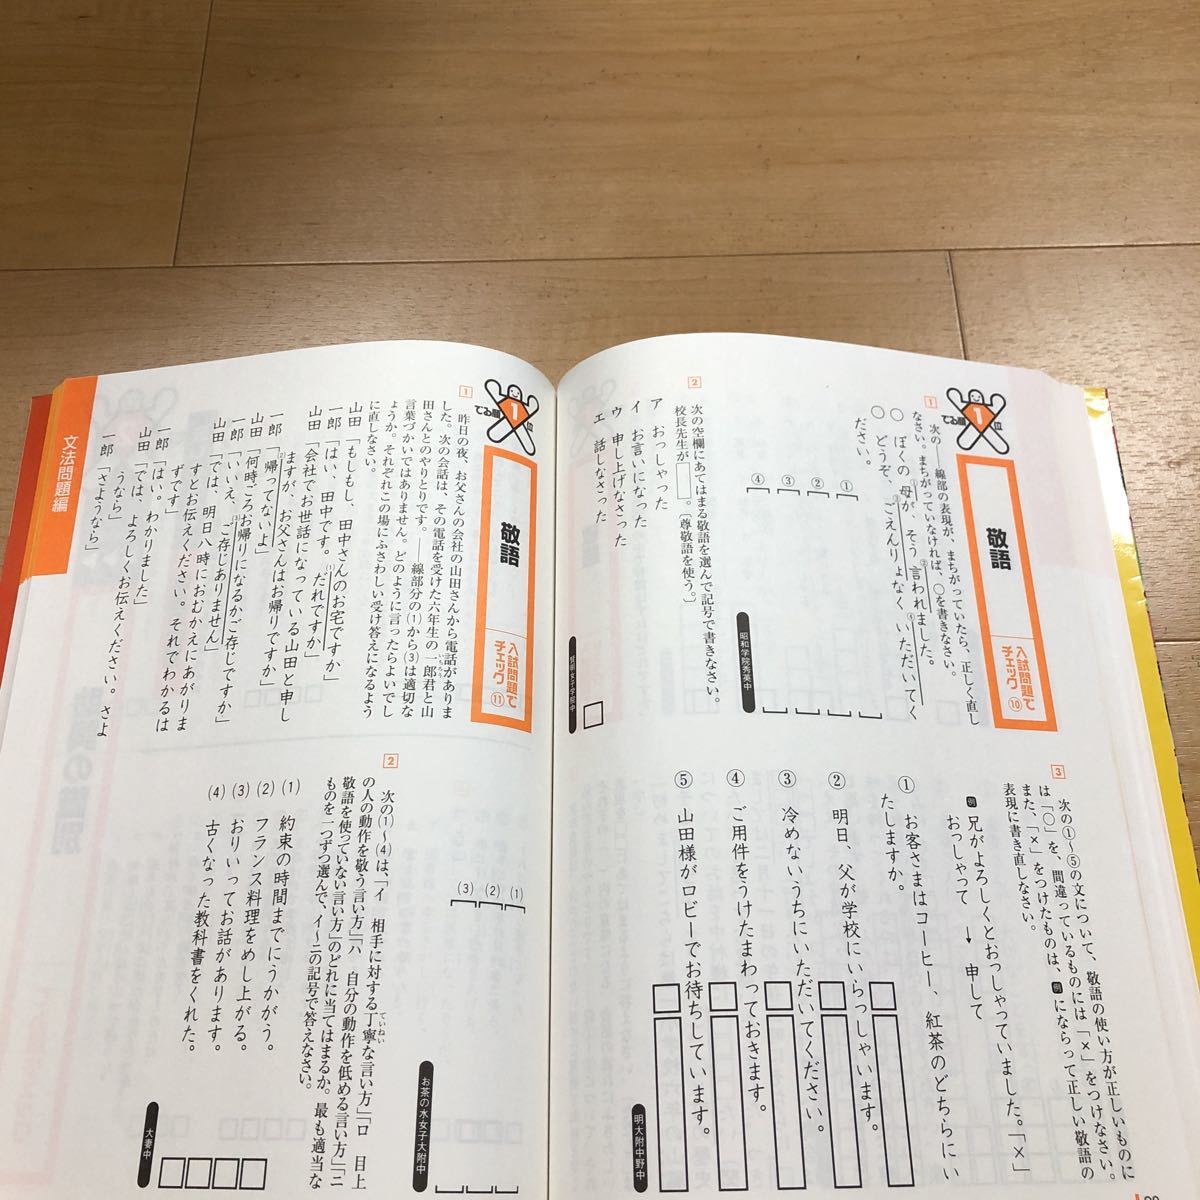 でる順
1
位
敬語
入試問題で
チェック⑩
1
次の――線部の表現が、まちがっていたら、正しく直し
なさい。まちがっていなければ、○を書きなさい。
○ ぼくの母①が、そう②言われました。
○ どうぞ、③ごえんりょなく④いただいてく
ださい。
①
②
③
④
昭和学院秀英中
2
次の空欄にあてはまる敬語を選んで記号で書きなさい。
校長先生が□。〔尊敬語を使う。〕
ア おっしゃった
イ お言いになった
ウ 申し上げなさった
エ 話しなさった
賢明女子学院中
3
次の①〜⑤の文について、敬語の使い方が正しいものに
は「○」を、間違っているものには「×」をつけなさい。
また、「×」をつけたものは、例にならって正しい敬語の
表現に書き直しなさい。
例 兄がよろしくとおっしゃっていました。「×」
おっしゃって → 申して
① お客さまはコーヒー、紅茶のどちらにい
たしますか。
② 明日、父が学校にいらっしゃいます。
③ 冷めないうちにいただいてください。
④ ご用件をうけたまわっておきます。
⑤ 山田様がロビーでお待ちしています。
明大附中野中
でる順
1
位
敬語
入試問題で
チェック⑪
1
昨日の夜、お父さんの会社の山田さんから電話がありま
した。次の会話は、その電話を受けた六年生の一郎君と山
田さんとのやりとりです。――線部分の⑴から⑶は適切な
言葉づかいではありません。どのように言ったらよいでし
ょうか。それぞれこの場にふさわしい受け答えになるよう
に直しなさい。
山田「もしもし、田中さんのお宅ですか」
一郎「はい、田中です。⑴だれですか」
山田「会社でお世話になっている山田と申し
ますが、お父さんはお帰りですか」
一郎「⑵帰ってないよ」
山田「何時ころお帰りになるかご存じですか」
一郎「いいえ、⑶ご存じありません」
山田「では、明日八時におむかえにあがりま
すとお伝えください。それでわかるは
ずです」
一郎「はい。わかりました」
山田「では、よろしくお伝えください。さよ
うなら」
一郎「さようなら」
⑴
⑵
⑶
お茶の水女子大附中
2
次の⑴〜⑷は、「イ 相手に対する丁寧な言い方」「ロ 目上
の人の動作を敬う言い方」「ハ 自分の動作を低める言い方」「ニ
敬語を使っていない言い方」のどれに当てはまるか。最も適当な
ものを一つずつ選んで、イ〜ニの記号で答えなさい。
⑴ 約束の時間までにうかがう。
⑵ フランス料理をめし上がる。
⑶ おりいってお話があります。
⑷ 古くなった教科書をくれた。
大妻中
文法問題編